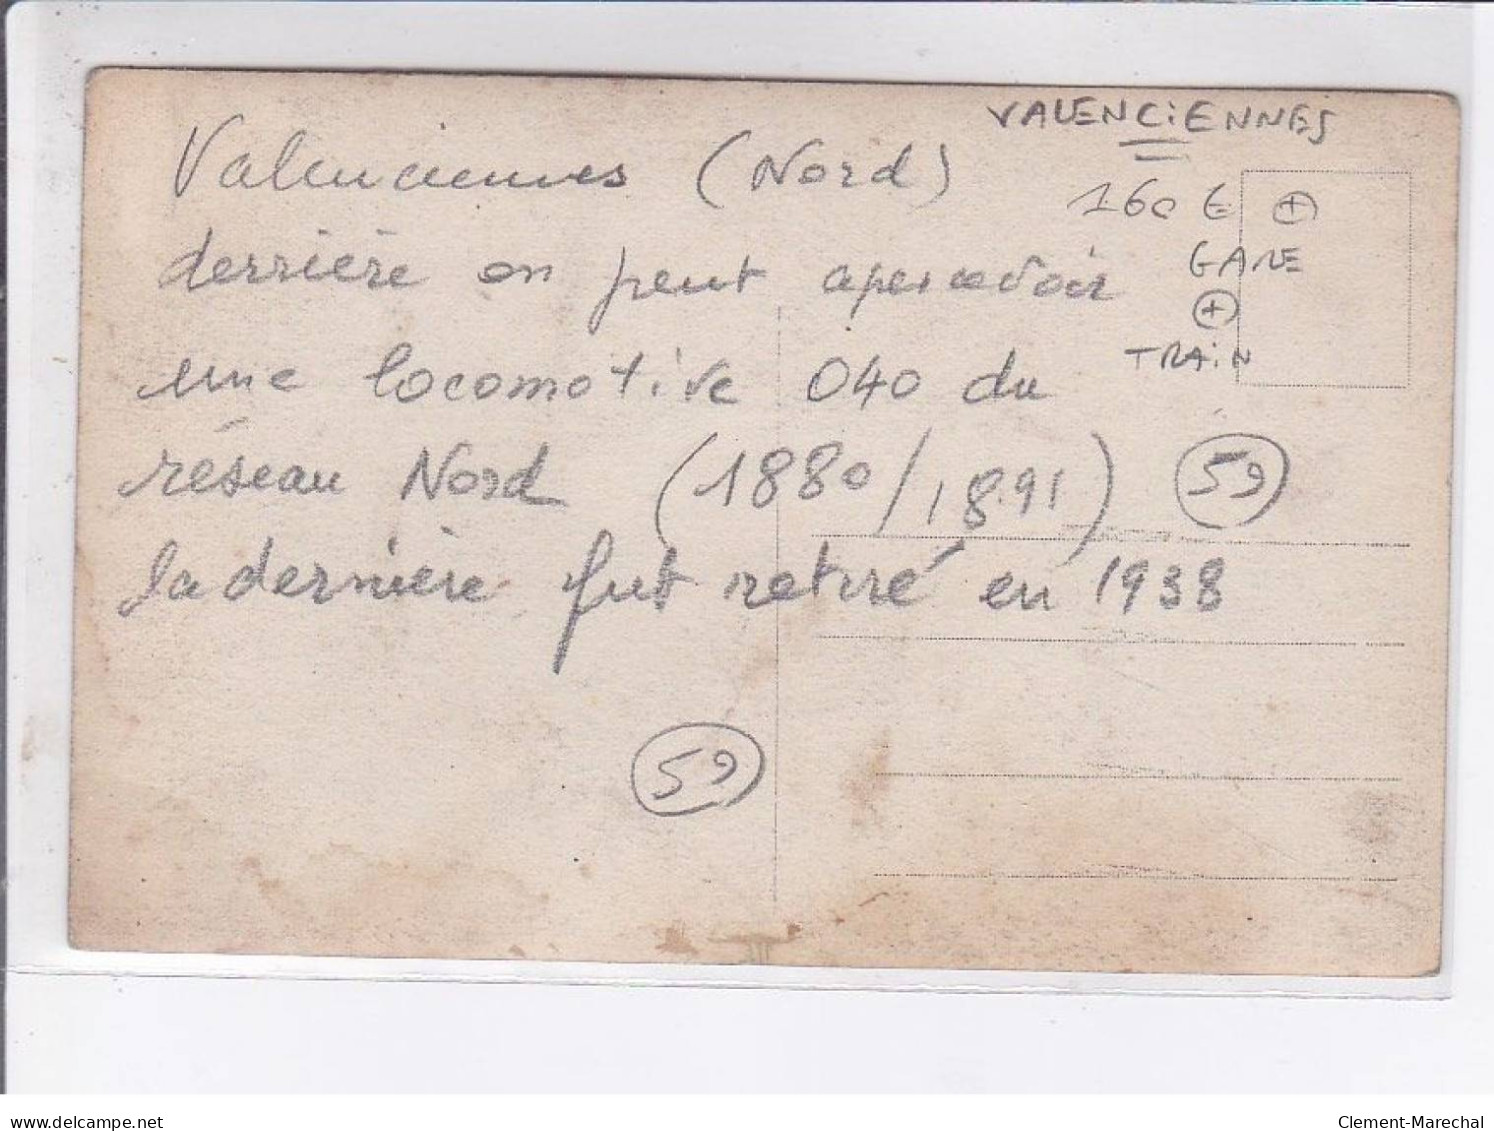 VALENCiENNES
Valenciennes (Nord)
160 € +
derrière on peut apercevoir
GARE
+
une locomotive 040 du
TRAiN
réseau Nord (1880/1891)
59
la dernière fut retiré en 1938
59
www.delcampe.net
Clement-Marechal